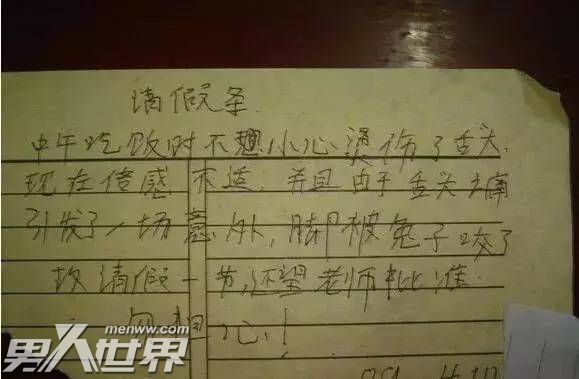 请假条
中午吃饭时不小心烫伤了舌头.
现在倍感不适,并且由于舌头之痛
引发了一场意外,脚被兔子咬了
故请假一节,还望老师批准.
menww.com
男人世界